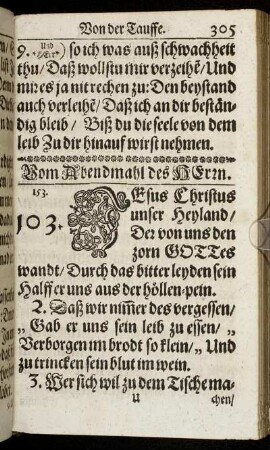 Von der Tauffe. 305
9. so ich was auß schwachheit
thu/ Daß wollstu mir verzeihẽ/ Und
mir es ja nit rechen zu: Den beystand
auch verleihẽ/ Daß ich an dir bestän-
dig bleib/ Biß du die seele von dem
leib Zu dir hinauf wirst nehmen.
Vom Abendmahl des HErrn.
153.
103. JEsus Christus
unser Heyland/
Der von uns den
zorn GOTTes
wandt/ Durch das bitter leyden sein
Halff er uns aus der höllen-pein.
2. Daß wir nim̃er des vergessen/
„ Gab er uns sein leib zu essen/ „
Verborgen im brodt so klein/ „ Und
zu trincken sein blut im wein.
3. Wer sich wil zu dem Tische ma-
u chen/